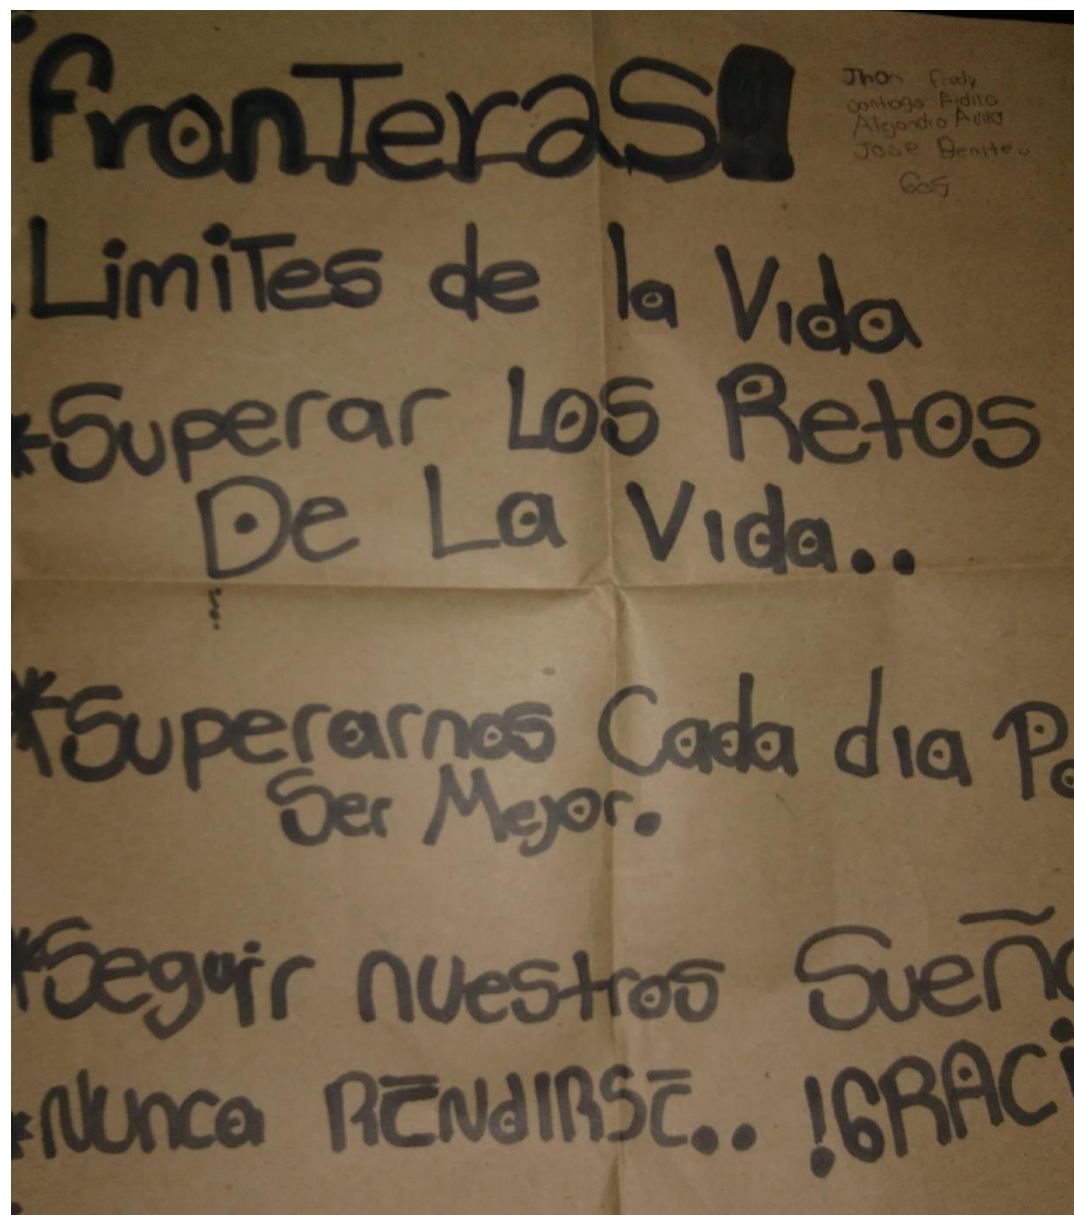 fronTeras
Jhon fredy
Santiago
Alejandro Avila
Jose Benitez
605
LimiTes de la Vida
*Superar Los Retos
De La Vida..
*Superarnos Cada dia Po
Ser Mejor.
*Seguir nuestros Sueño
*Nunca RENdIRSE.. !GRACi